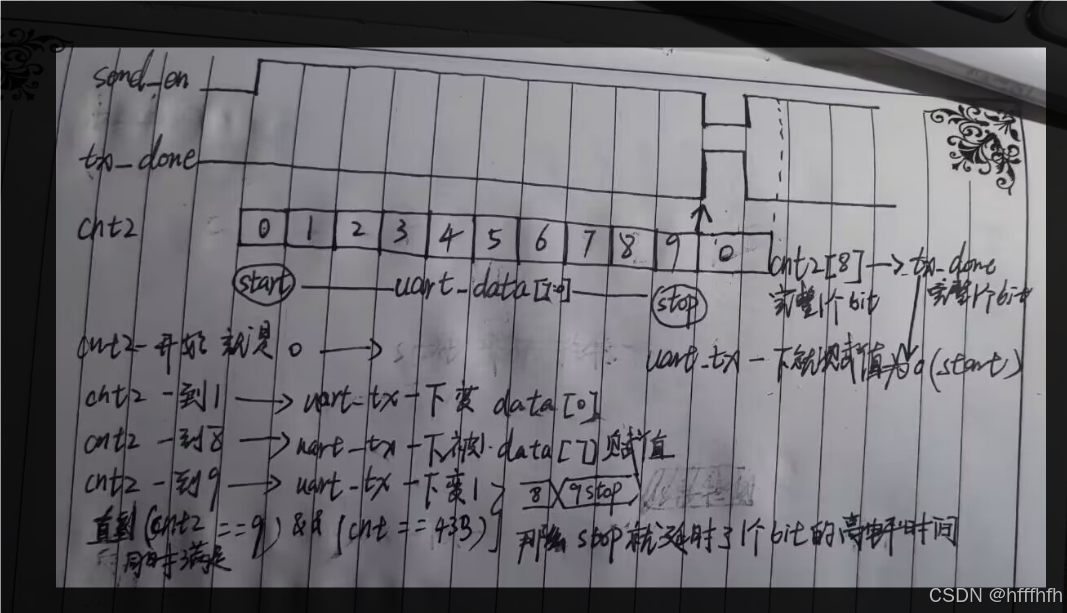 send_en
tx_done
cnt2 0 1 2 3 4 5 6 7 8 9 0
start uart_data[7:0] stop
cnt2[8] → tx_done
完整1个bit 完整1个bit
uart_tx 一下就赋值为0(start)
cnt2 一开始就是 0 →
cnt2 一到1 → uart_tx 一下变 data[0]
cnt2 一到8 → uart_tx 一下被 data[7]赋值
cnt2 一到9 → uart_tx 一下变1 8 9stop
直到(cnt2 ==9) && (cnt == 433)
同时满足
那么 stop 就延时了1个bit的高电平时间
CSDN @hfffhfh